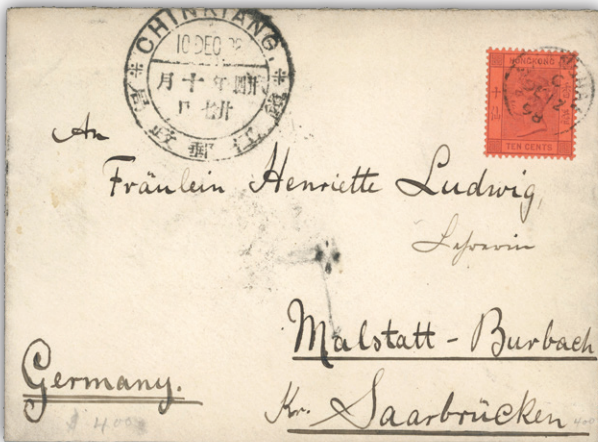 CHINKIANG.
10 DEC 98
月十年
日
鎮江郵政局
HONGKONG
TEN CENTS
An
Fräulein Henriette Ludwig,
Lehrerin
Malstatt-Burbach
Germany.
Kr. Saarbrücken
400